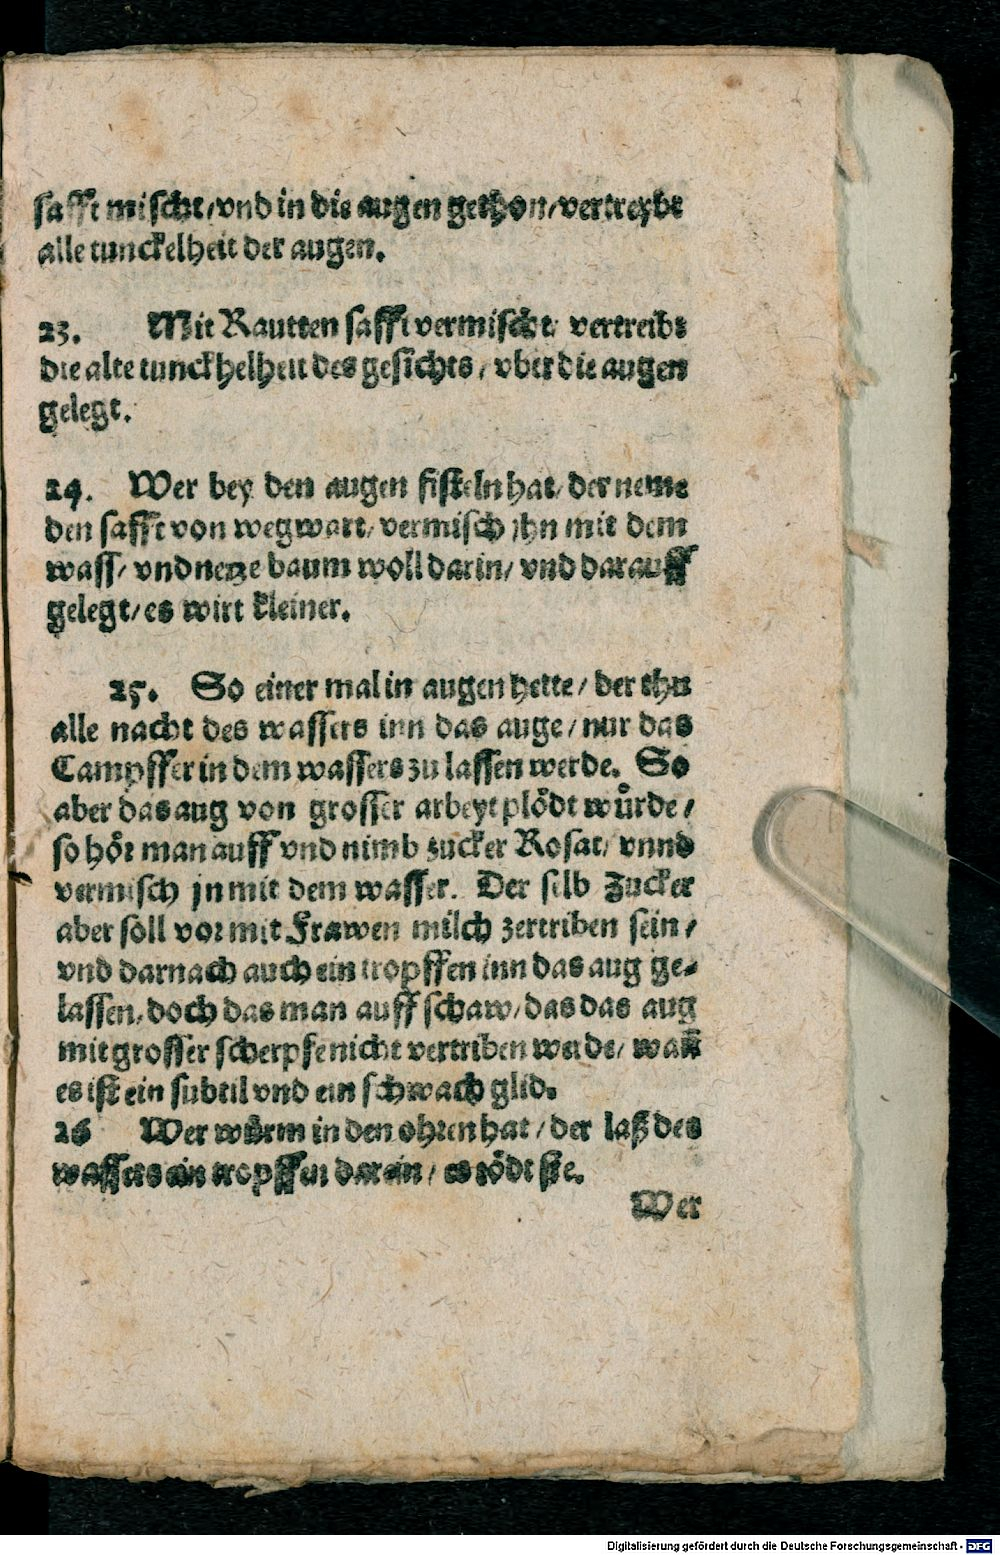 safft mischt/vnd in die augen gethon/vertreybt
alle tunckelheit der augen.
23. Mit Rautten safft vermischt/ vertreibt
die alte tunckhelheit des gesichts/ vber die augen
gelegt.
24. Wer bey den augen fisteln hat/ der neme
den safft von wegwart/ vermisch jhn mit dem
wass/ vnd netze baum woll darin/ vnd darauff
gelegt/ es wirt kleiner.
25. So einer mal in augen hette/ der thu
alle nacht des wassers inn das auge/ nur das
Campffer in dem wassers zu lassen werde. So
aber das aug von grosser arbeyt plödt wůrde/
so hör man auff vnd nimb zucker Rosat/ vnnd
vermisch jn mit dem wasser. Der selb Zucker
aber soll vor mit Frawen milch zertriben sein/
vnd darnach auch ein tropffen inn das aug ge-
lassen/ doch das man auff schaw/ das das aug
mit grosser scherpfe nicht vertriben werde/ wañ
es ist ein subtil vnd ein schwach glid.
26 Wer würm in den ohren hat/ der laß des
wassers ein tropffen darein/ es tödt sie.
Wer
Digitalisierung gefördert durch die Deutsche Forschungsgemeinschaft - DFG